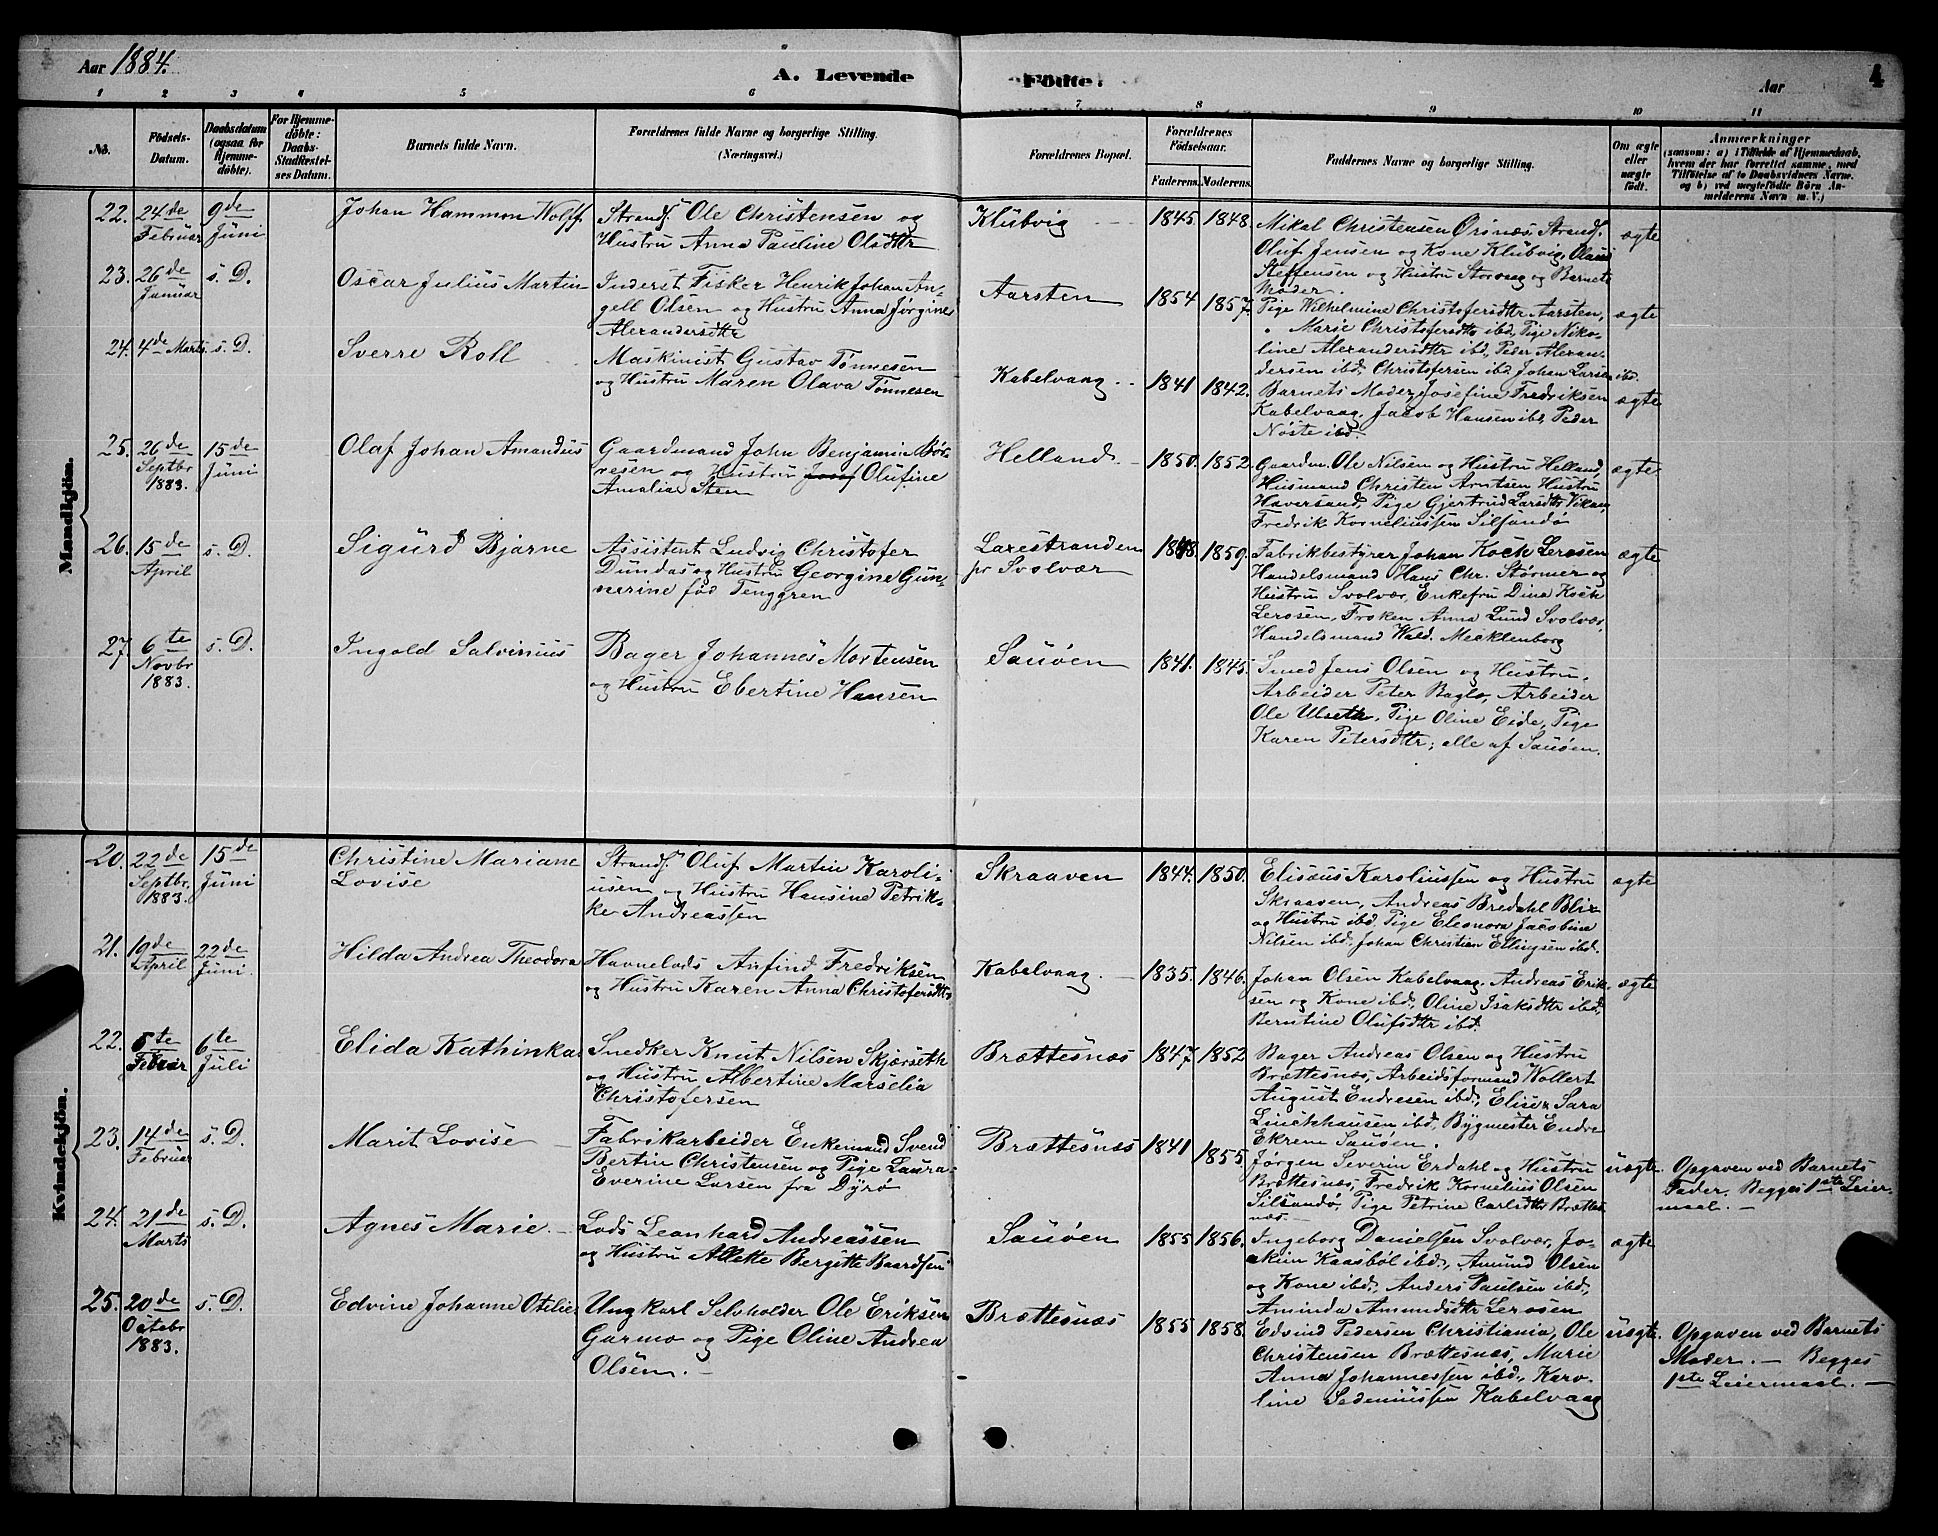 Aar 1884.
A. Levende Födte.
Aar
4
1 2 3 4 5 6 7 8 9 10 11
No.
Födsels-
Datum.
Daabsdatum
(ogsaa for
Hjemme-
döbte).
For Hjemme-
döbte:
Daabs-
Stadfæstel-
ses Datum.
Barnets fulde Navn.
Forældrenes fulde Navne og borgerlige Stilling.
(Næringsvei.)
Forældrenes Bopæl.
Forældrenes
Födselsaar.
Faderens. Moderens.
Faddernes Navne og borgerlige Stilling.
Om ægte
eller
uægte
födt.
Anmærkninger
(saasom: a) i Tilfælde af Hjemmedaab,
hvem der har forrettet samme, med
Tilföielse af to Daabsvidners Navne,
og b) ved uægtefödte Börn An-
melderens Navn m. V.)
Mandkjön.
22. 24de Februar
9de Juni
Johan Hammon Wolff
Strands. Ole Christensen og
Hustru Anna Pauline Olsdttr
Klubvig
1845. 1848.
Mikal Christensen Örsnæs Strands.
Oluf Jensen og Kone Klubvig, Olaus
Steffensen og Hustru Storvag og Barnets
Moder.
ægte
23. 26de Januar
s. D.
Oscar Julius Martin
Inderst Fisker Henrik Johan An-
gell Olsen og Hustru Anna Jørgine
Alexandersdttr
Aarsten
1854 1857.
Pige Wilhelmine Christofersdttr Aarsten,
" Marie Christofersdttr ibd, Pige Niko-
line Alexandersdttr ibd, Peder Alexan-
dersen ibd, Christofersen ibd Johan Larsen ibd.
ægte
24. 4de Marts
s. D.
Sverre Roll
Maskinist Gustav Tönnesen
og Hustru Maren Olava Tönnesen
Kabelvaag
1841 1842.
Barnets Moder, Josefine Fredriksen
Kabelvaag, Jacob Hansen ibd, Peder
Nöste ibd.
ægte
25. 26de Septbr 1883.
15de Juni
Olaf Johan Amandus
Gaardmand John Benjamin Bör-
resen og Hustru Olufine
Amalia Sten
Helland
1850. 1852.
Gaardm. Ole Nilsen og Hustru Helland,
Husmand Christen Arntsen Hustru
Haversand, Pige Gjertrud Larsdttr Vikan,
Fredrik Korneliussen Silsandö
ægte
26. 15de April
s. D.
Sigurd Bjarne
Assistent Ludvig Christofer
Dundas og Hustru Georgine Gun-
nerine föd Tenggren
Laxestranden
pr Svolvær
1848. 1859.
Fabrikbestyrer Johan Kock Lerosen
Handelsmand Hans Chr. Størmer og
Hustru Svolvær, Enkefru Dina Kock
Lerosen, Frøken Anna Lund Svolvær,
Handelsmand Wald. Mecklenborg
ægte
27. 6te Novbr 1883.
s. D.
Ingold Salvinius
Bager Johannes Mortensen
og Hustru Ebertine Hansen
Sauöen
1841. 1845.
Smed Jens Olsen og Hustru,
Arbeider Peter Baglo, Arbeider
Ole Ulseth, Pige Oline Eide, Pige
Karen Petersdttr; alle af Sauöen.
Kvindekjön.
20. 22de Septbr. 1883.
15de Juni
Christine Mariane
Lovise
Strands. Oluf Martin Karoli-
usen og Hustru Hansine Petrik-
ke Andreassen
Skraaven
1844. 1850.
Elisæus Karoliussen og Hustru
Skraaven, Andreas Bredahl Blix
og Hustru ibd, Pige Eleonora Jacobine
Nilsen ibd, Johan Christian Ellingsen ibd.
ægte
21. 19de April
22de Juni.
Hilda Andrea Theodora
Havnelods Anfind Fredriksen
og Hustru Karen Anna Christofersdttr
Kabelvaag.
1835. 1846.
Johan Olsen Kabelvaag, Andreas Erik-
sen og Kone ibd., Oline Isaksdttr ibd.,
Berntine Olufsdttr ibd.
ægte
22. 5te Februar
6te Juli
Elida Kathinka
Snedker Knut Nilsen Skjærseth
og Hustru Albertine Marselia
Christofersen
Brættesnæs
1847. 1852
Bager Andreas Olsen og Hustru
Brættesnæs, Arbeidsformand Wollert
August Endresen ibd., Elise & Sara
Linckhausen ibd, Bygmester Endre
Ekrem Sauöen.
23. 14de Februar
s. D.
Marit Lovise
Fabrikarbeider Enkemand Svend
Bertin Christensen og Pige Laura
Everine Larsen fra Dyrö
Brættesnæs
1841 1855.
Jørgen Severin Erdahl og Hustru
Brættesnæs, Fredrik Kornelius Olsen
Silsandö, Pige Petrine Carlsdttr Brættes-
næs.
uægte.
Opgaven ved Barnets
Fader. Begges 1ste Leier-
maal. —
24. 21de Marts
s. D.
Agnes Marie.
Lods Leonhard Andreassen
og Hustru Alette Bergitte Baardsen
Sauöen
1855 1856.
Ingeborg Danielsen Svolvær, Jo-
akim Kaasböl ibd., Amund Olsen
og Kone ibd., Anders Paulsen ibd.,
Aminda Amundsdttr Lerosen
ægte
25. 20de Octobr 1883.
s. D.
Edvine Johanne Otelie
Ungkarl Selvholder Ole Eriksen
Garmo og Pige Oline Andrea
Olsen. —
Brættesnæs
1855 1858.
Edvind Pedersen Christiania, Ole
Christensen Brættesnæs, Marie
Anna Johannessen ibd., Karo-
line Sedeniussen Kabelvaag
uægte.
Opgaven ved Barnets
Moder. — Begges
1ste Leiermaal. —